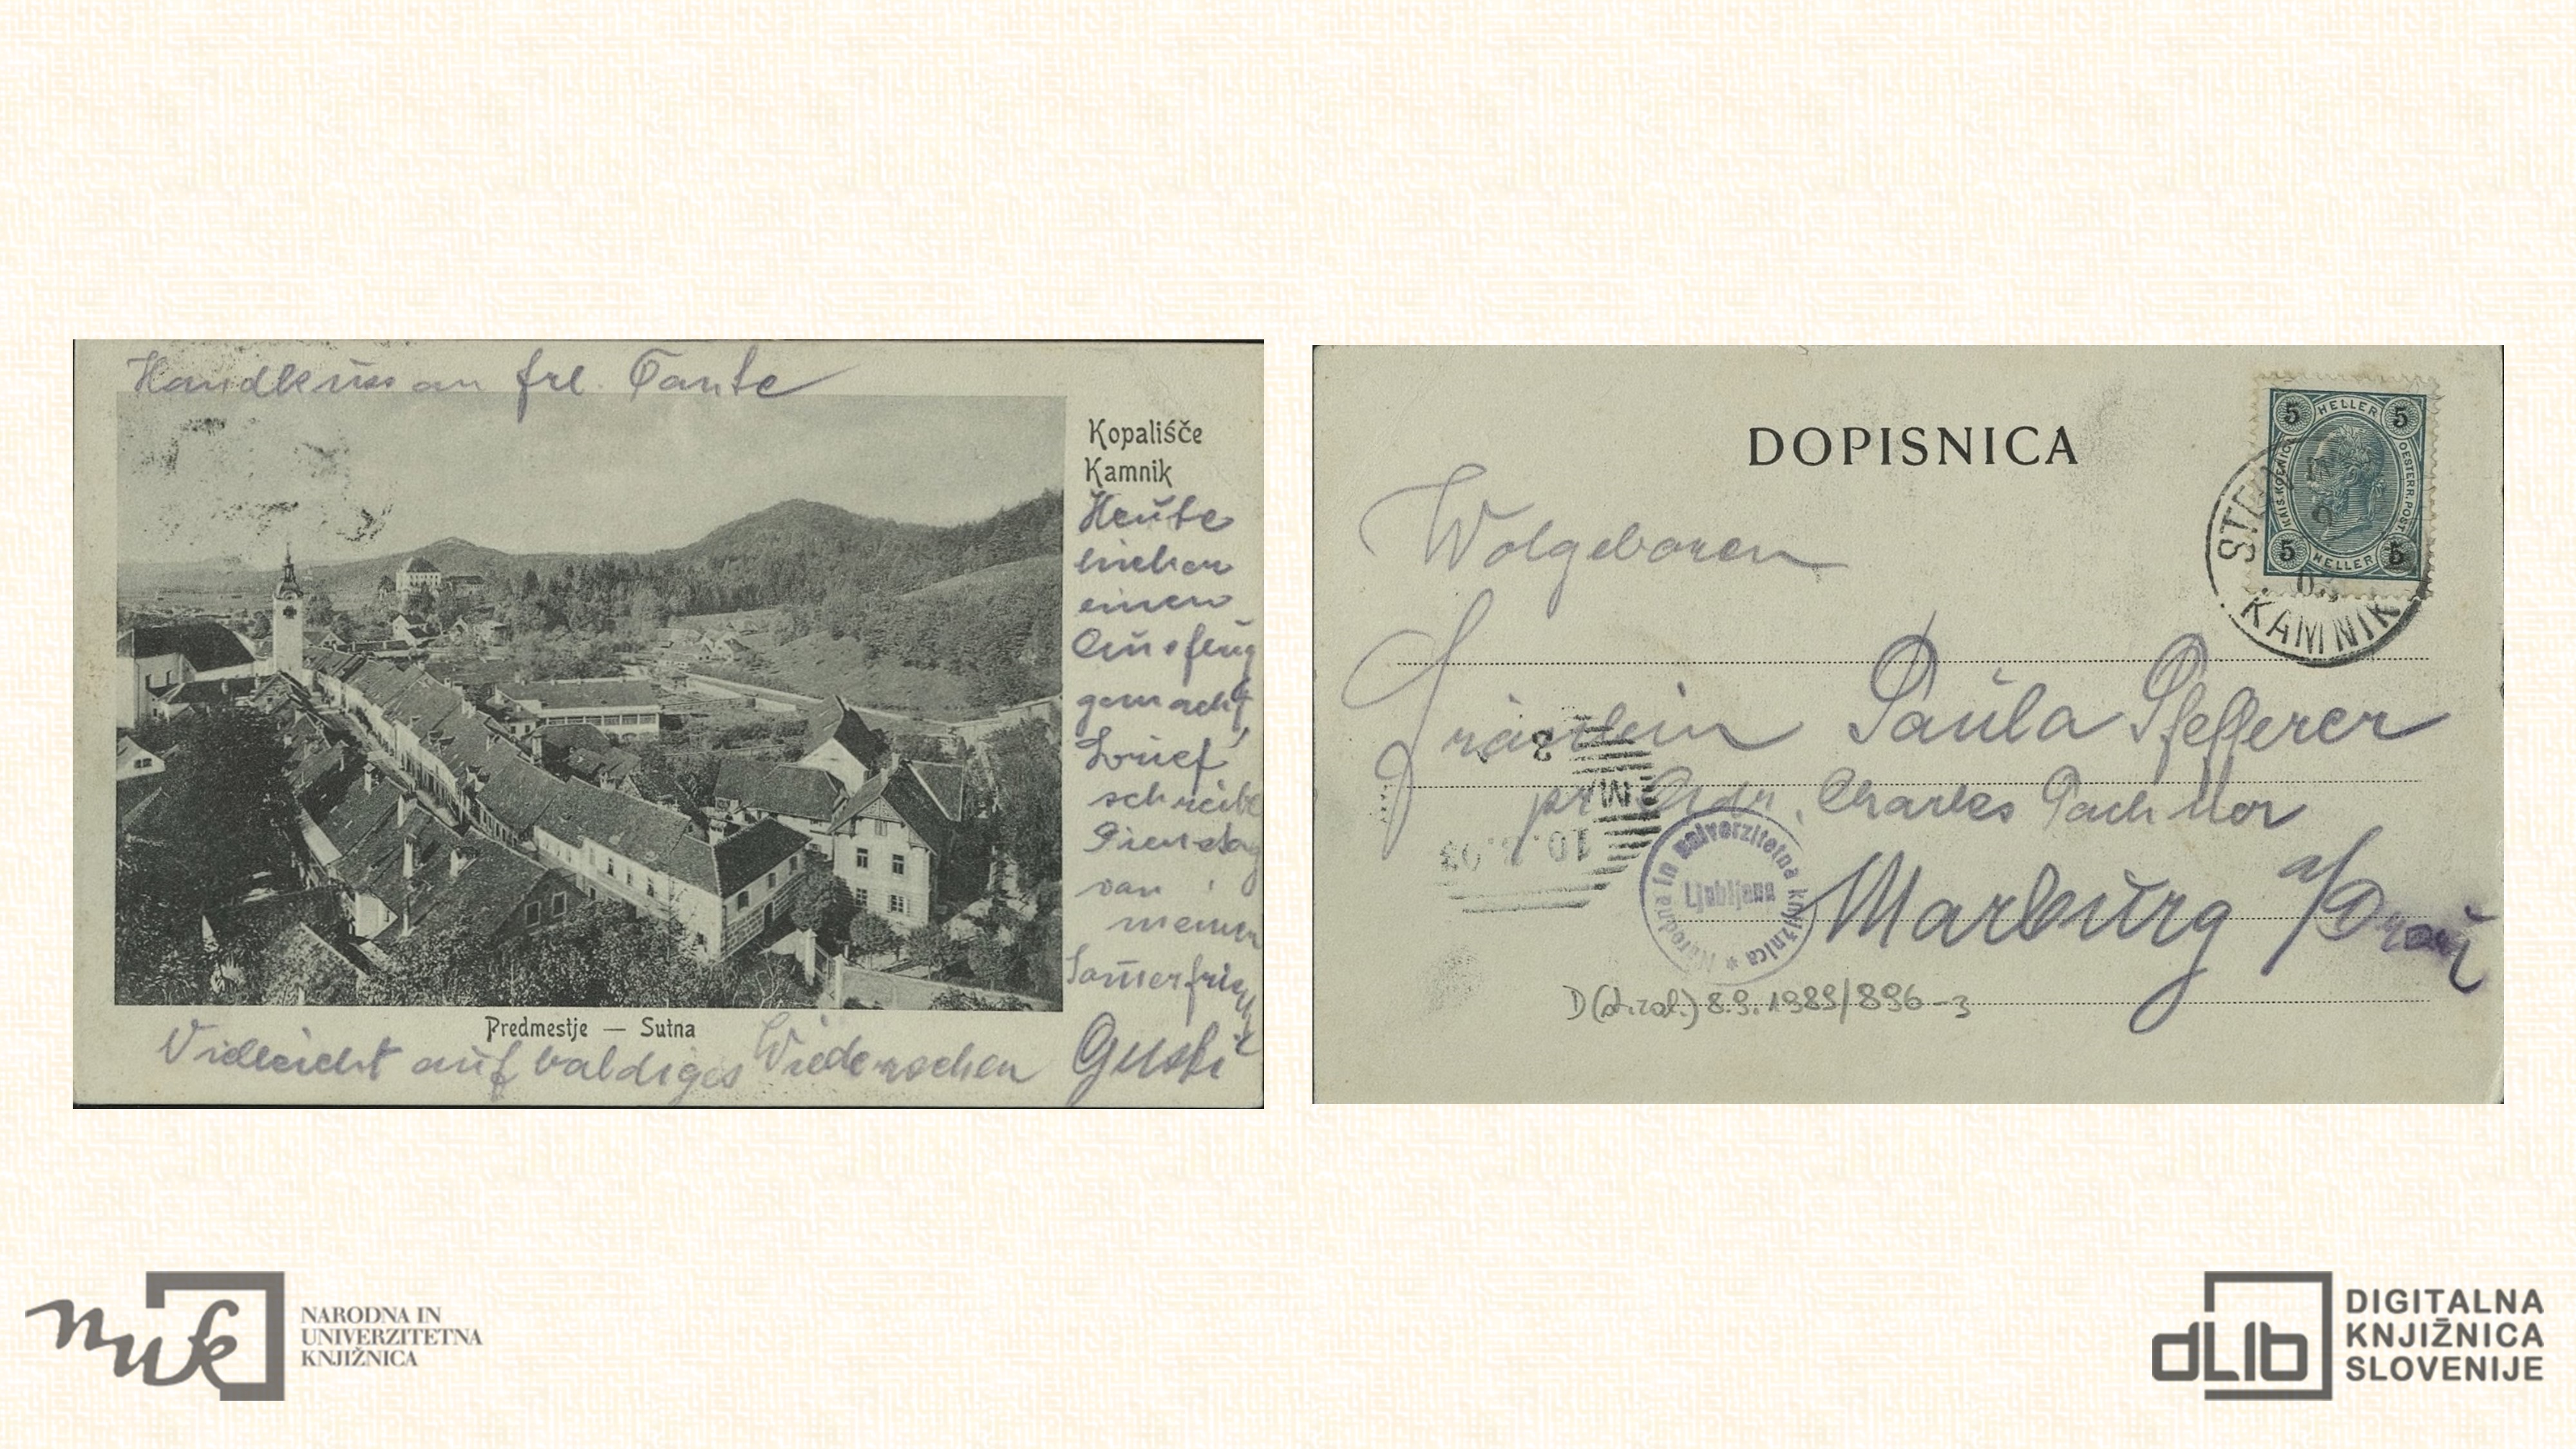 Handkuss an frl. Tante
Kopališče
Kamnik
Heute
hieher
einen
Ausflug
gemacht,
schreibe
Dienstag
von
meiner
Predmestje — Sutna
Vielleicht auf baldiges Wiedersehen Gusti
DOPISNICA
5 HELLER 5
KAIS. KOENIGL. OESTERR. POST
5 HELLER 5
KAMNIK
Wolgeboren
Fräulein Paula Pfefferer
Charles Pachner
Marburg a/Drau
Narodna in univerzitetna knjižnica
Ljubljana
8.9.1989/896-3
nuk
NARODNA IN
UNIVERZITETNA
KNJIŽNICA
dLib
DIGITALNA
KNJIŽNICA
SLOVENIJE